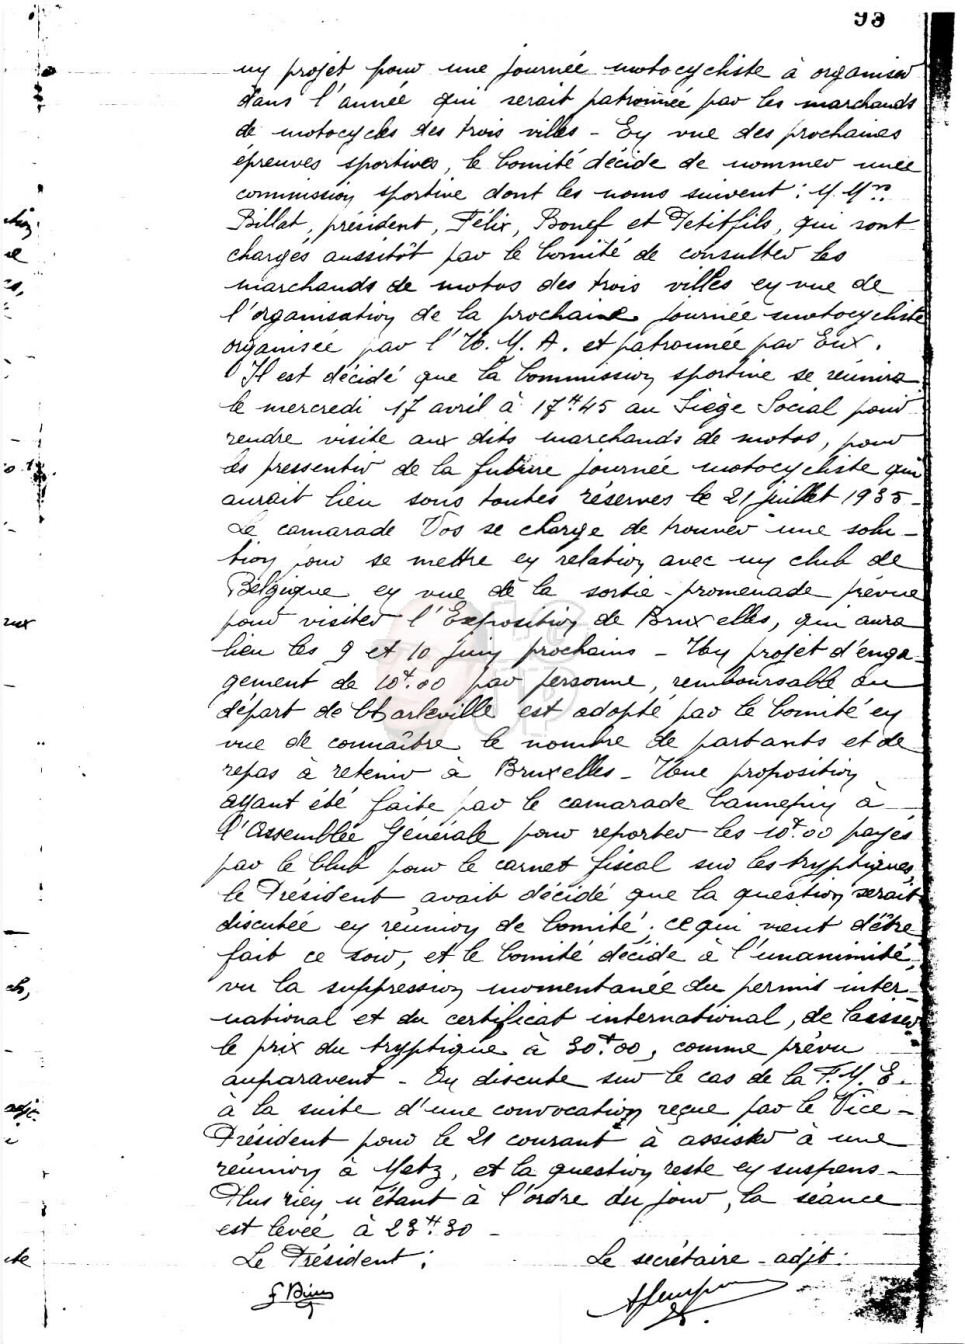 93
un projet pour une journée motocycliste à organiser
dans l'année qui serait patronnée par les marchands
de motocycles des trois villes - En vue des prochaines
épreuves sportives, le Comité décide de nommer une
commission sportive dont les noms suivent : M.Mrs
Billat, président, Félix, Bonef et Petitfils, qui sont
chargés aussitôt par le Comité de consulter les
marchands de motos des trois villes en vue de
l'organisation de la prochaine journée motocycliste
organisée par l'U.M.A. et patronnée par Eux.
Il est décidé que la Commission sportive se réunira
le mercredi 17 avril à 17H45 au Siège Social pour
rendre visite aux dits marchands de motos, pour
les pressentir de la future journée motocycliste qui
aurait lieu sous toutes réserves le 21 juillet 1935 -
Le camarade Vos se charge de trouver une solu-
tion pour se mettre en relation avec un club de
Belgique en vue de la sortie-promenade prévue
pour visiter l'Exposition de Bruxelles, qui aura
lieu les 9 et 10 juin prochains - Un projet d'enga-
gement de 10f.00 par personne, remboursable au
départ de Charleville est adopté par le Comité en
vue de connaître le nombre de partants et de
repas à retenir à Bruxelles - Une proposition
ayant été faite par le camarade à
l'Assemblée Générale pour reporter les 10f.00 payés
par le Club pour le carnet fiscal sur les tryptiques,
le Président avait décidé que la question serait
discutée en réunion de Comité ; ce qui vient d'être
fait ce soir, et le Comité décide à l'unanimité,
vu la suppression momentanée du permis inter-
national et du certificat international, de laisser
le prix du tryptique à 30f.00, comme prévu
auparavent - On discute sur le cas de la F.M.E.
à la suite d'une convocation reçue par le Vice-
Président pour le 21 courant à assister à une
réunion à Metz, et la question reste en suspens -
Plus rien n'étant à l'ordre du jour, la séance
est levée à 23H30 -
Le Président : Le secrétaire-adjt :